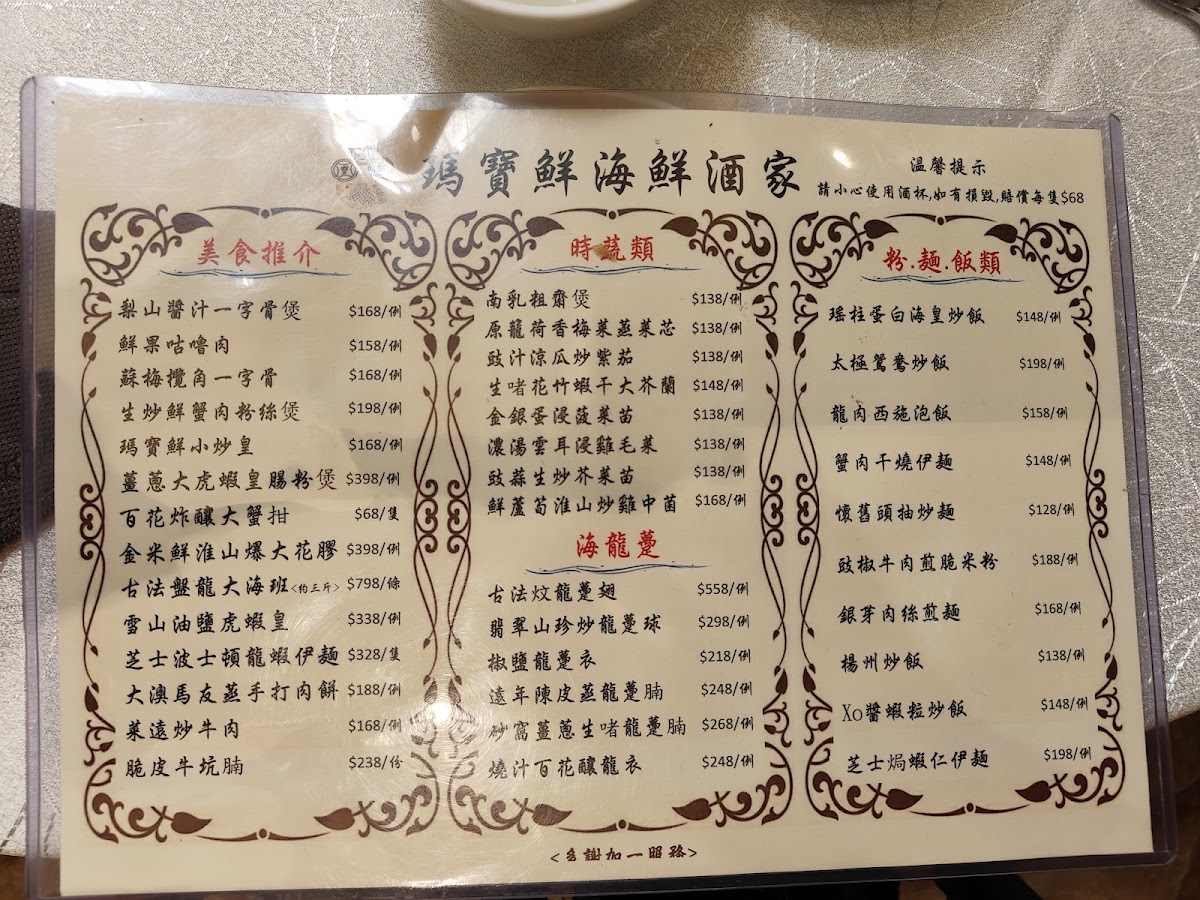 瑪寶鮮海鮮酒家
溫馨提示
請小心使用酒杯,如有損毀,賠償每隻$68
美食推介
梨山醬汁一字骨煲 $168/例
鮮果咕嚕肉 $158/例
蘇梅欖角一字骨 $168/例
生炒鮮蟹肉粉絲煲 $198/例
瑪寶鮮小炒皇 $168/例
薑蔥大虎蝦皇腸粉煲 $398/例
百花炸釀大蟹拑 $68/隻
金米鮮淮山爆大花膠 $398/例
古法盤龍大海班<約三斤> $798/條
雪山油鹽虎蝦皇 $338/例
芝士波士頓龍蝦伊麵 $328/隻
大澳馬友蒸手打肉餅 $188/例
菜遠炒牛肉 $168/例
脆皮牛坑腩 $238/份
時蔬類
南乳粗齋煲 $138/例
原籠荷香梅菜蒸菜芯 $138/例
豉汁涼瓜炒紫茄 $138/例
生啫花竹蝦干大芥蘭 $148/例
金銀蛋浸菠菜苗 $138/例
濃湯雲耳浸雞毛菜 $138/例
豉蒜生炒芥菜苗 $138/例
鮮蘆筍淮山炒雞中菌 $168/例
海龍躉
古法炆龍躉翅 $558/例
翡翠山珍炒龍躉球 $298/例
椒鹽龍躉衣 $218/例
遠年陳皮蒸龍躉腩 $248/例
砂窩薑蔥生啫龍躉腩 $268/例
燒汁百花釀龍衣 $248/例
粉.麵.飯類
瑤柱蛋白海皇炒飯 $148/例
太極鴛鴦炒飯 $198/例
龍肉西施泡飯 $158/例
蟹肉干燒伊麵 $148/例
懷舊頭抽炒麵 $128/例
豉椒牛肉煎脆米粉 $188/例
銀芽肉絲煎麵 $168/例
楊州炒飯 $138/例
Xo醬蝦粒炒飯 $148/例
芝士焗蝦仁伊麵 $198/例
<多謝加一服務>